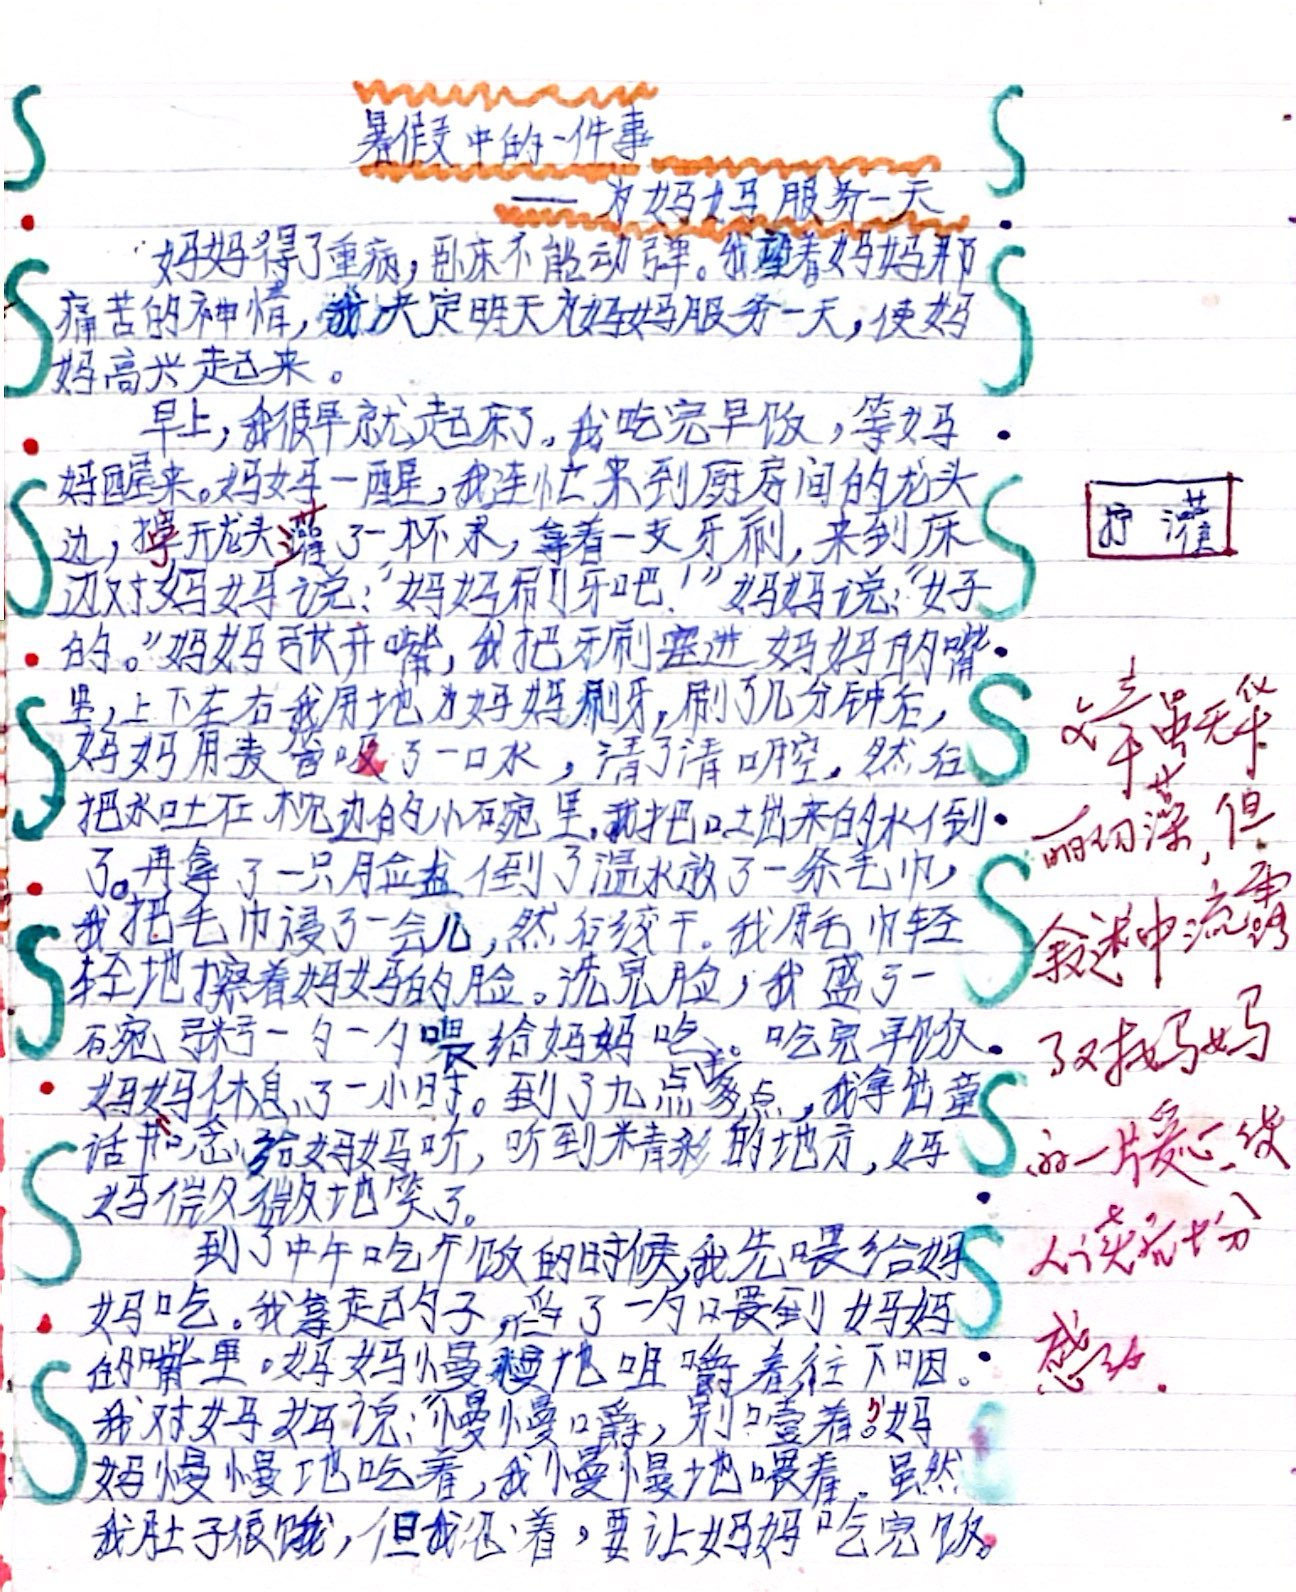 暑假中的一件事
——为妈妈服务一天
妈妈得了重病，卧床不能动弹。我望着妈妈那
痛苦的神情，我决定明天为妈妈服务一天，使妈
妈高兴起来。
早上，我很早就起床了。我吃完早饭，等妈
妈醒来。妈妈一醒，我连忙来到厨房间的龙头
边，拧开龙头灌了一杯水，拿着一支牙刷，来到床
边对妈妈说：“妈妈刷牙吧！”妈妈说：“好
的。”妈妈张开嘴，我把牙刷塞进妈妈的嘴
里，上下左右我用地为妈妈刷牙，刷了几分钟后，
妈妈用麦管吸了一口水，清了清口腔，然后
把水吐在枕边的小碗里。我把吐出来的水倒
了。再拿了一只脸盆倒了温水放了一条毛巾，
我把毛巾浸了一会儿，然后绞干。我用毛巾轻
轻地擦着妈妈的脸。洗完脸，我盛了一
碗粥一勺一勺喂给妈妈吃。吃完早饭
妈妈休息了一小时。到了九点多点，我拿出童
话书念给妈妈听，听到精彩的地方，妈
妈微微地笑了。
到了中午吃午饭的时候，我先喂给妈
妈吃。我拿起勺子，舀了一勺喂到妈妈
的嘴里。妈妈慢慢地咀嚼着往下咽。
我对妈妈说：“慢慢嚼，别噎着。”妈
妈慢慢地吃着，我慢慢地喂着。虽然
我肚子很饿，但我忍着，要让妈妈吃完饭。
拧 灌
文章虽无华
丽词藻，但
叙述中流露
了对妈妈
的一片爱心，使
人读后十分
感动.